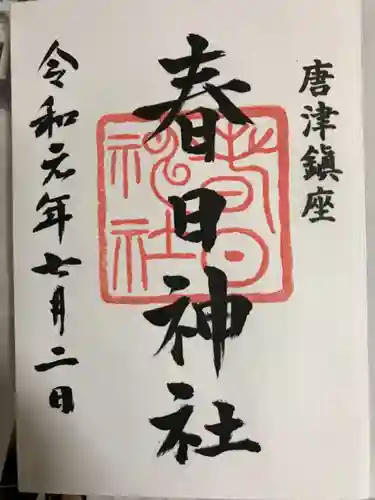 唐津鎮座
春日神社
春日神社
令和元年七月二日